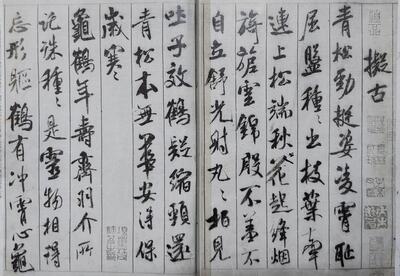 擬古
青松勁挺姿凌霄恥
屈盤種〻出枝葉牽
連上松端秋花起絳烟
旖旎雲錦殷不羞不
自立舒光射丸〻柏見
吐子效鶴疑縮頸還
青松本無華安得保
歲寒
龜鶴年壽齊羽介所
託殊種〻是靈物相得
忘形軀鶴有沖霄心龜